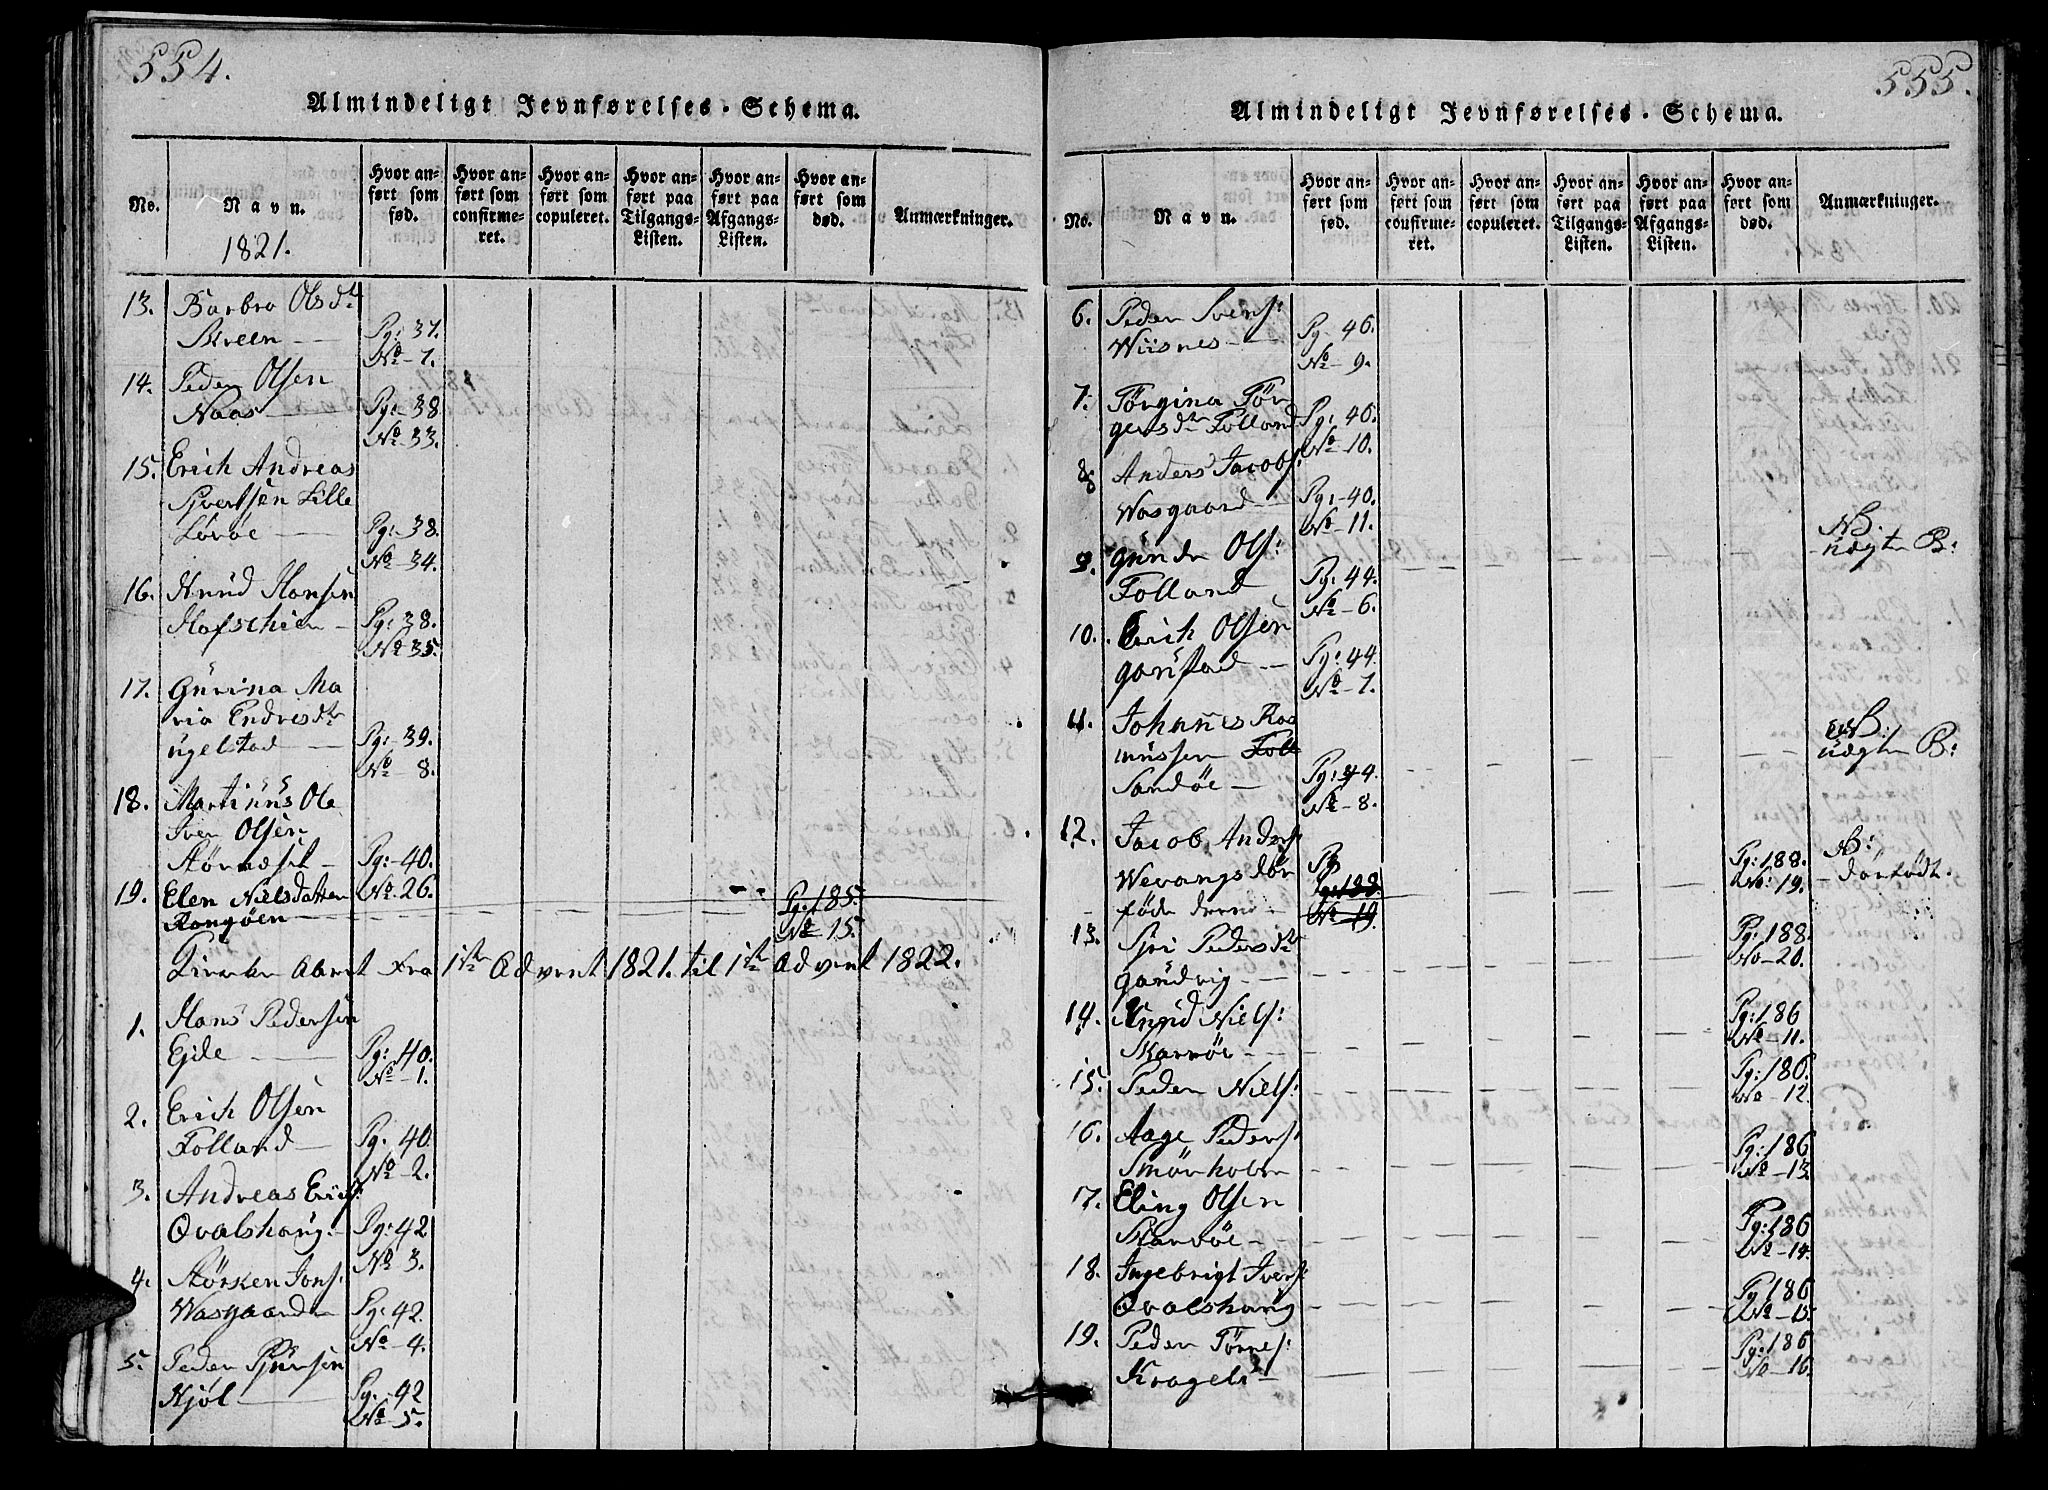 554.
Almindeligt Jevnførelses-Schema.
No.
Navn.
Hvor an-
ført som
fød.
Hvor an-
ført som
confirme-
ret.
Hvor an-
ført som
copuleret.
Hvor an-
ført paa
Tilgangs-
Listen.
Hvor an-
ført paa
Afgangs-
Listen.
Hvor an-
ført som
død.
Anmærkninger.
1821.
13. Barbro Olsdr
Skeen Pg: 37.
No 7.
14. Peder Olsen
Naas Pg: 38
No 33.
15. Erich Andreas
Sivertsen Lille
Løvøe Pg: 38.
No 34.
16. Knud Hansen
Hafschien Pg: 38.
No 35.
17. Gurina Ma
ria Endresdr
ugelstad Pg: 39.
No 8.
18. Martinus Ole
Iver Olsen
Størnesset Pg: 40.
19. Elen Nielsdatter No 26. Pg: 185.
Rangøen No 15.
Kirke Aaret Fra 1ste Advent 1821. til 1ste Advent 1822.
1. Hans Pedersen
Ejde Pg: 40.
No 1.
2. Erich Olsen
Folland Pg. 40.
No 2.
3. Andreas Erics:
Qvalshaug Pg: 42
No 3.
4. Størken Jons:
Wasgaarden Pg: 42.
No 4.
5. Peder
Kjøl Pg: 42
No 5.
555.
Almindeligt Jevnførelses-Schema.
No.
Navn.
Hvor an-
ført som
fød.
Hvor an-
ført som
confirme-
ret.
Hvor an-
ført som
copuleret.
Hvor an-
ført paa
Tilgangs-
Listen.
Hvor an-
ført paa
Afgangs-
Listen.
Hvor an-
ført som
død.
Anmærkninger.
6. Peder Svens:
Wiisnes Pg 46.
No 9.
7. Törgina Tör
gersdr Folland Pg: 46.
No 10.
8 Anders Jacobs:
Wasgaard Pg: 40.
No 11.
9. Gunder Ols: NB.
Folland Pg: 44. uægte B:
No 6.
10. Erich Olsen
Garstad Pg: 44.
No 7.
11. Johannes Ras
mussen Foll NB.
Sandöe Pg: 44. uægte B:
No 8.
12. Jacob Anders:
Wevangs dör Pg Pg: 188. NB:
Pg: 188. No 19. dödfödt.
föde No 19.
13. Siri Pedersdr Pg: 188.
Gaudvig No 20.
14. Knud Niels: Pg: 186
Skarvöe No 11.
15. Peder Niels: Pg: 186.
No 12.
16. Aage Peders: Pg: 186
Smörholm No 13
17. Eling Olsen Pg: 186
Skarvöe No 14.
18. Ingebrigt Ivers: Pg 186
Qvalshaug No 15.
19. Peder Törres: Pg: 186
Kragels No 16.